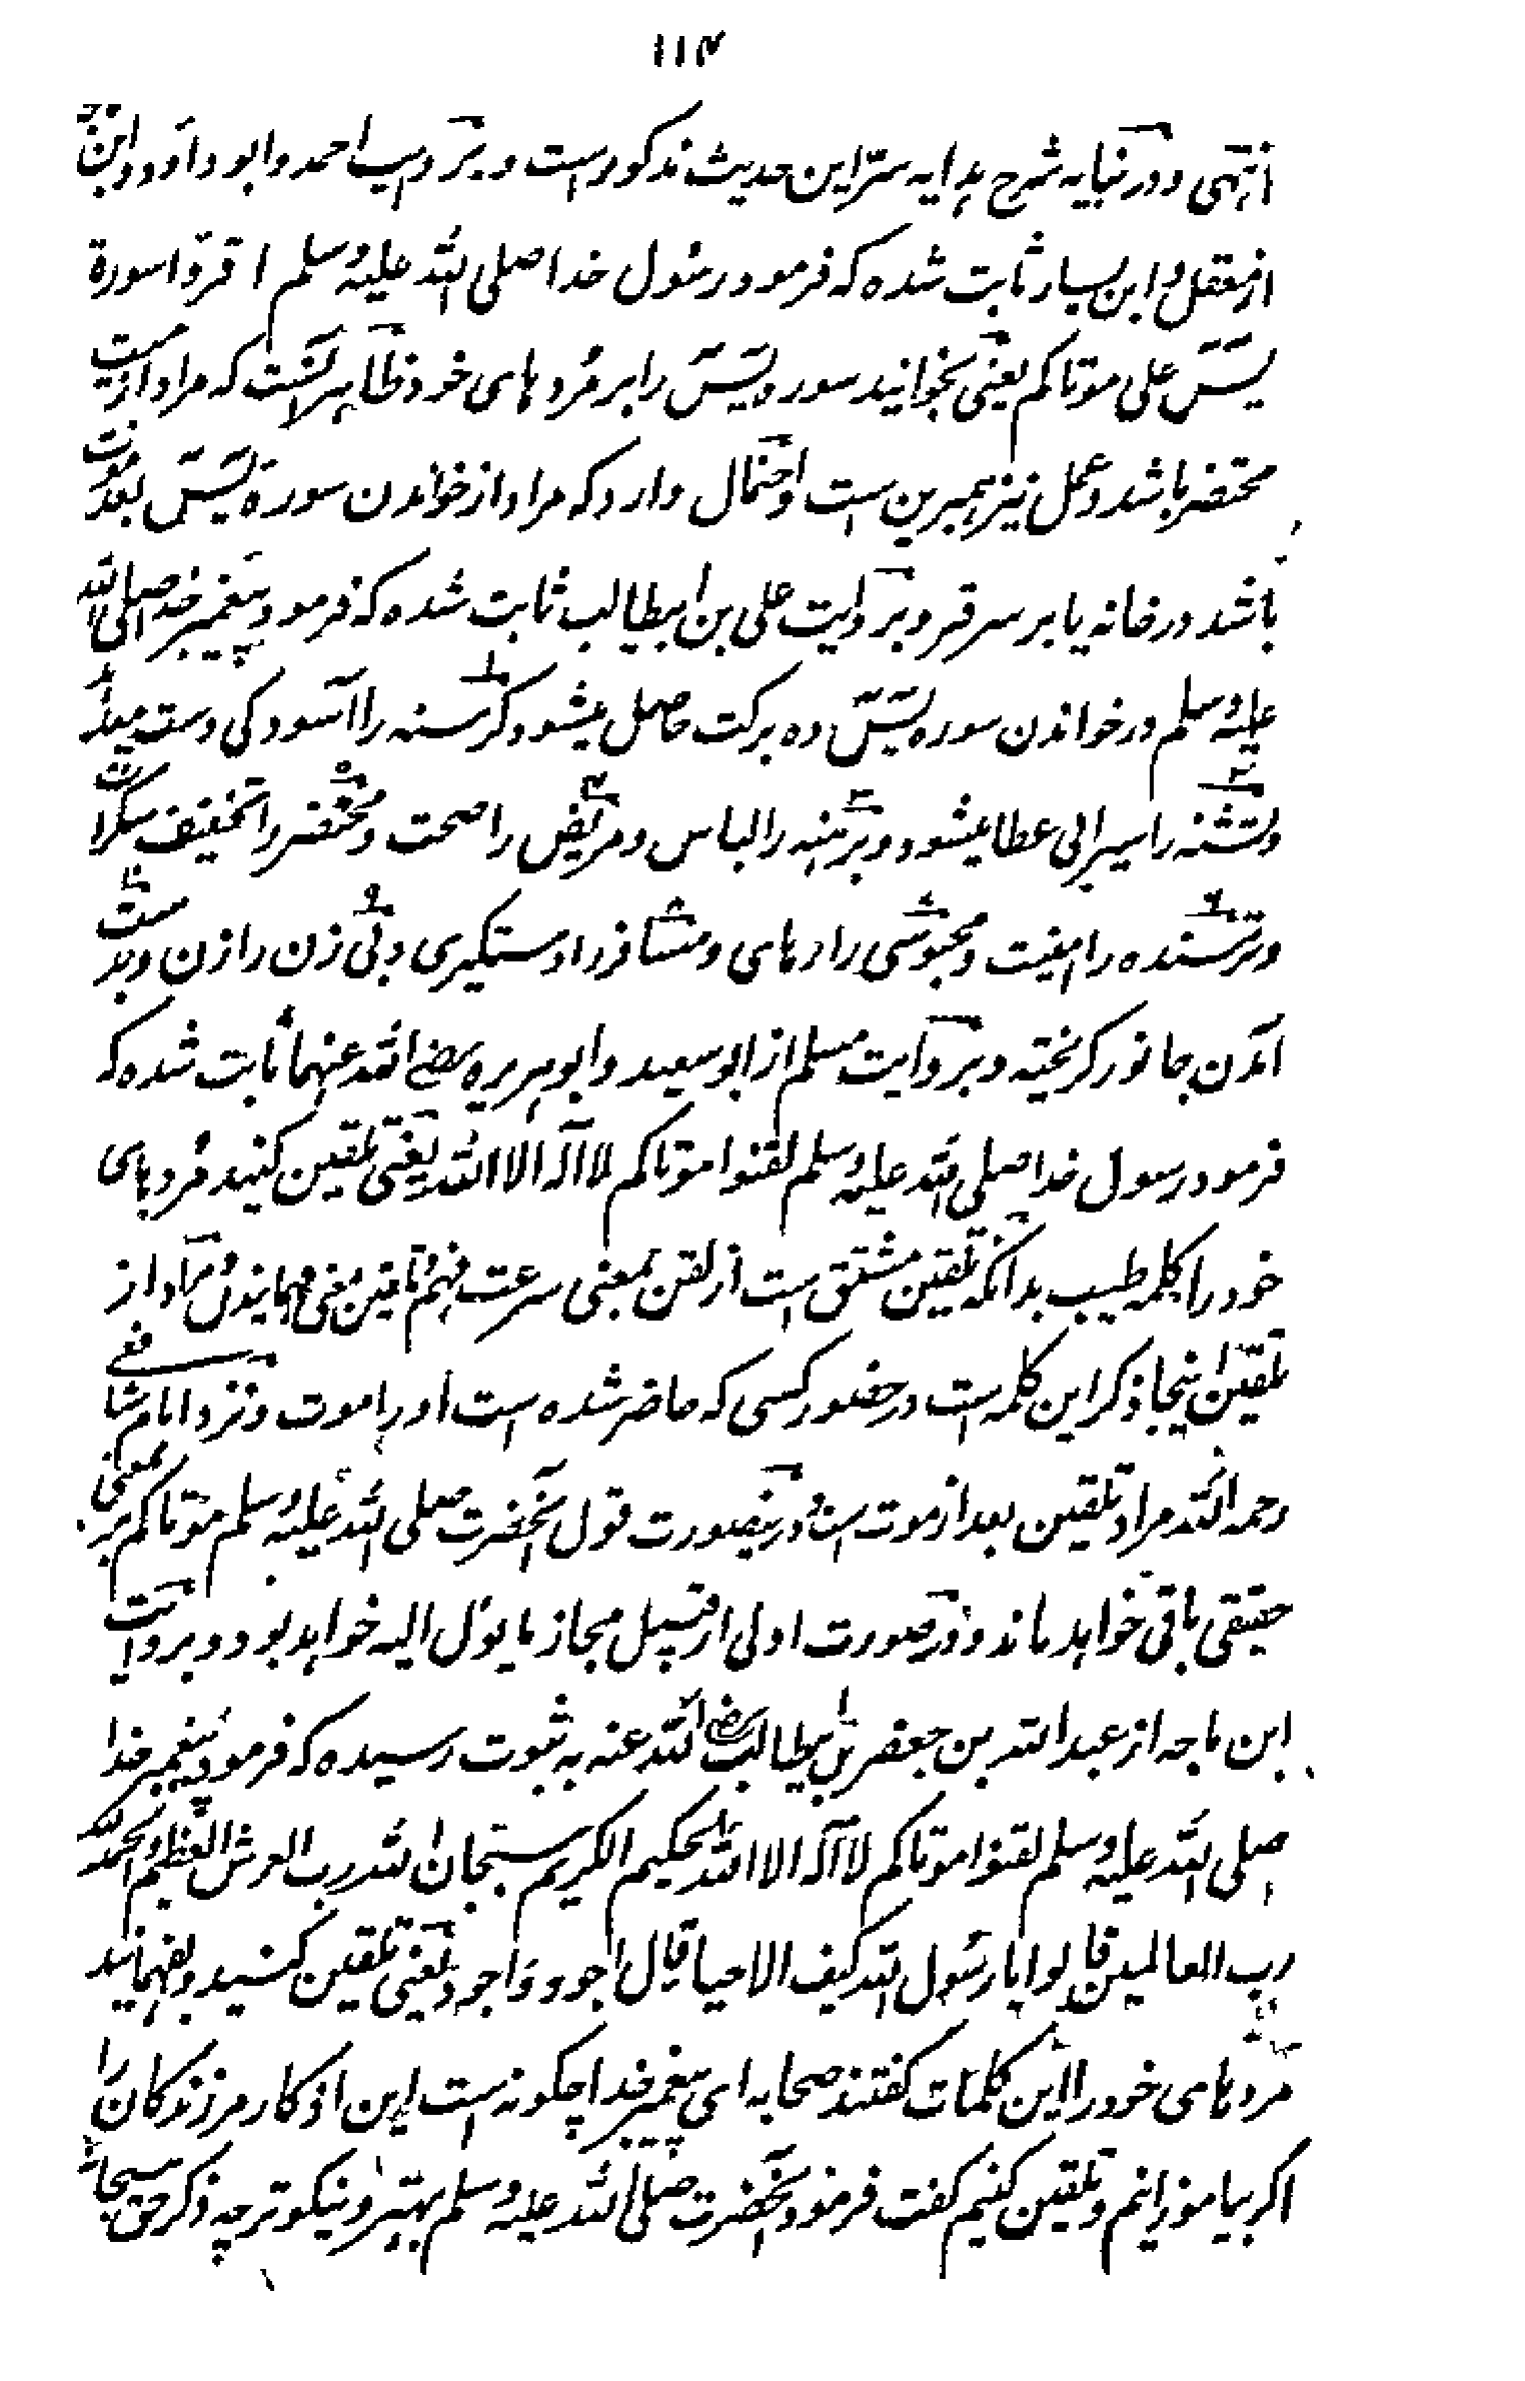 ۱۱۴
انتهی و در نبایه شرح هدایه سرّ این حدیث مذکور است و بروایت احمد و ابو داوود و ابن ماجه
از معقل و ابن یسار ثابت شده که فرمود رسول خدا صلی الله علیه و سلم اقرؤا سورة
یسٓ علی موتاکم یعنی بخوانید سوره یسٓ را بر مُرده های خود ظاهر آنست که مراد از میت
محتضر باشد و عمل نیز همبرین است و احتمال دارد که مراد از خواندن سورة یسٓ بعد موت
باشد در خانه یا بر سر قبر و بروایت علی بن ابیطالب ثابت شده که فرمود پیغمبر خدا صلی الله
علیه و سلم در خواندن سوره یسٓ ده برکت حاصل میشود گرسنه را آسودگی دست میدهد
و تشنه را سیرابی عطا میشود و برهنه را لباس و مریض را صحت و محتضر را تخفیف سکرات
و ترسنده را امنیت و محبوسی را رهای و مسافر را دستگیری و بی زن را زن و بدست
آمدن جانور گریخته و بروایت مسلم از ابو سعید و ابو هریره رضی الله عنهما ثابت شده که
فرمود رسول خدا صلی الله علیه و سلم لقنوا موتاکم لا اله الا الله یعنی تلقین کنید مُرده های
خود را کلمه طیب بدانکه تلقین مشتق است از لقن بمعنی سرعت فهم و تلقین معنی فهمانیدن مراد از
تلقین اینجا ذکر این کلمه است در حضور کسی که حاضر شده است او را موت و نزد امام شافعی
رحمه الله مراد تلقین بعد از موت است و درینصورت قول آنحضرت صلی الله علیه و سلم موتاکم بر معنی
حقیقی باقی خواهد ماند و در صورت اولی از قبیل مجاز ما یؤل الیه خواهد بود و بروایت
ابن ماجه از عبد الله بن جعفر بن ابیطالب رضی الله عنه به ثبوت رسیده که فرمود پیغمبر خدا
صلی الله علیه و سلم لقنوا موتاکم لا اله الا الله الحکیم الکریم سبحان الله رب العرش العظیم الحمد لله
رب العالمین قالوا یا رسول الله کیف الاحیا قال اجود و اجود یعنی تلقین کنید و بفهمانید
مرده های خود را این کلمات گفتند صحابه ای پیغمبر خدا چگونه است این اذکار مر زندگان را
اگر بیاموزانم و تلقین کنیم گفت فرمود آنحضرت صلی الله علیه و سلم بهتر و نیکوتر چه ذکر حق سبحانه